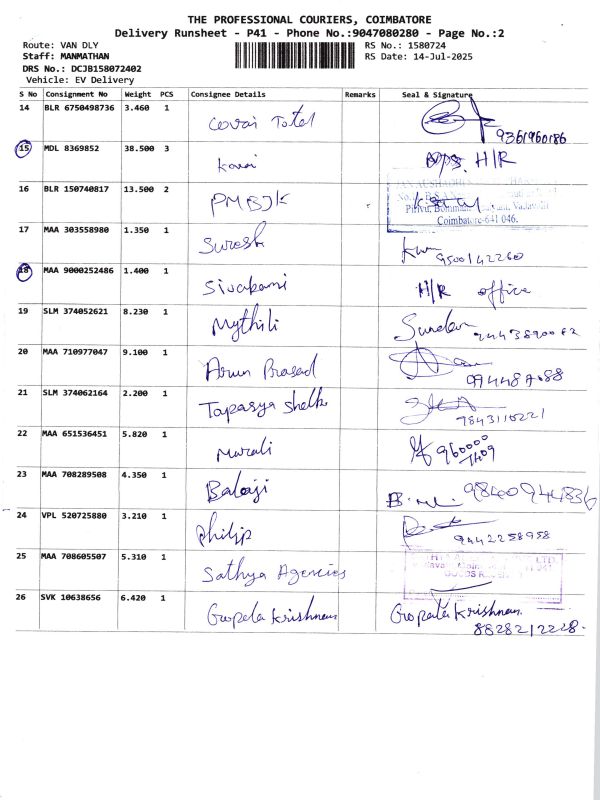 THE PROFESSIONAL COURIERS, COIMBATORE
Delivery Runsheet - P41 - Phone No.:9047080280 - Page No.:2
Route: VAN DLY RS No.: 1580724
Staff: MANMATHAN RS Date: 14-Jul-2025
DRS No.: DCJB158072402
Vehicle: EV Delivery
S No Consignment No Weight PCS Consignee Details Remarks Seal & Signature
14 BLR 6750498736 3.460 1
Covai Total 9361960186
15 MDL 8369852 38.500 3
Kovai H/R
16 BLR 150740817 13.500 2
PMBJK
Coimbatore-641 046.
17 MAA 303558980 1.350 1
Suresh 9500142260
18 MAA 9000252486 1.400 1
Sivakami H/R office
19 SLM 374052621 8.230 1
Mythili Sundar
20 MAA 710977047 9.100 1
Arun Prasad
21 SLM 374062164 2.200 1
Tapasya Shelke 9843110221
22 MAA 651536451 5.820 1
Murali
23 MAA 708289508 4.350 1
Balaji 9840944836
24 VPL 520725880 3.210 1
Philip 9442258958
25 MAA 708605507 5.310 1
Sathya Agencies
26 SVK 10638656 6.420 1
Gopala Krishnan Gopala Krishnan
8828212228.